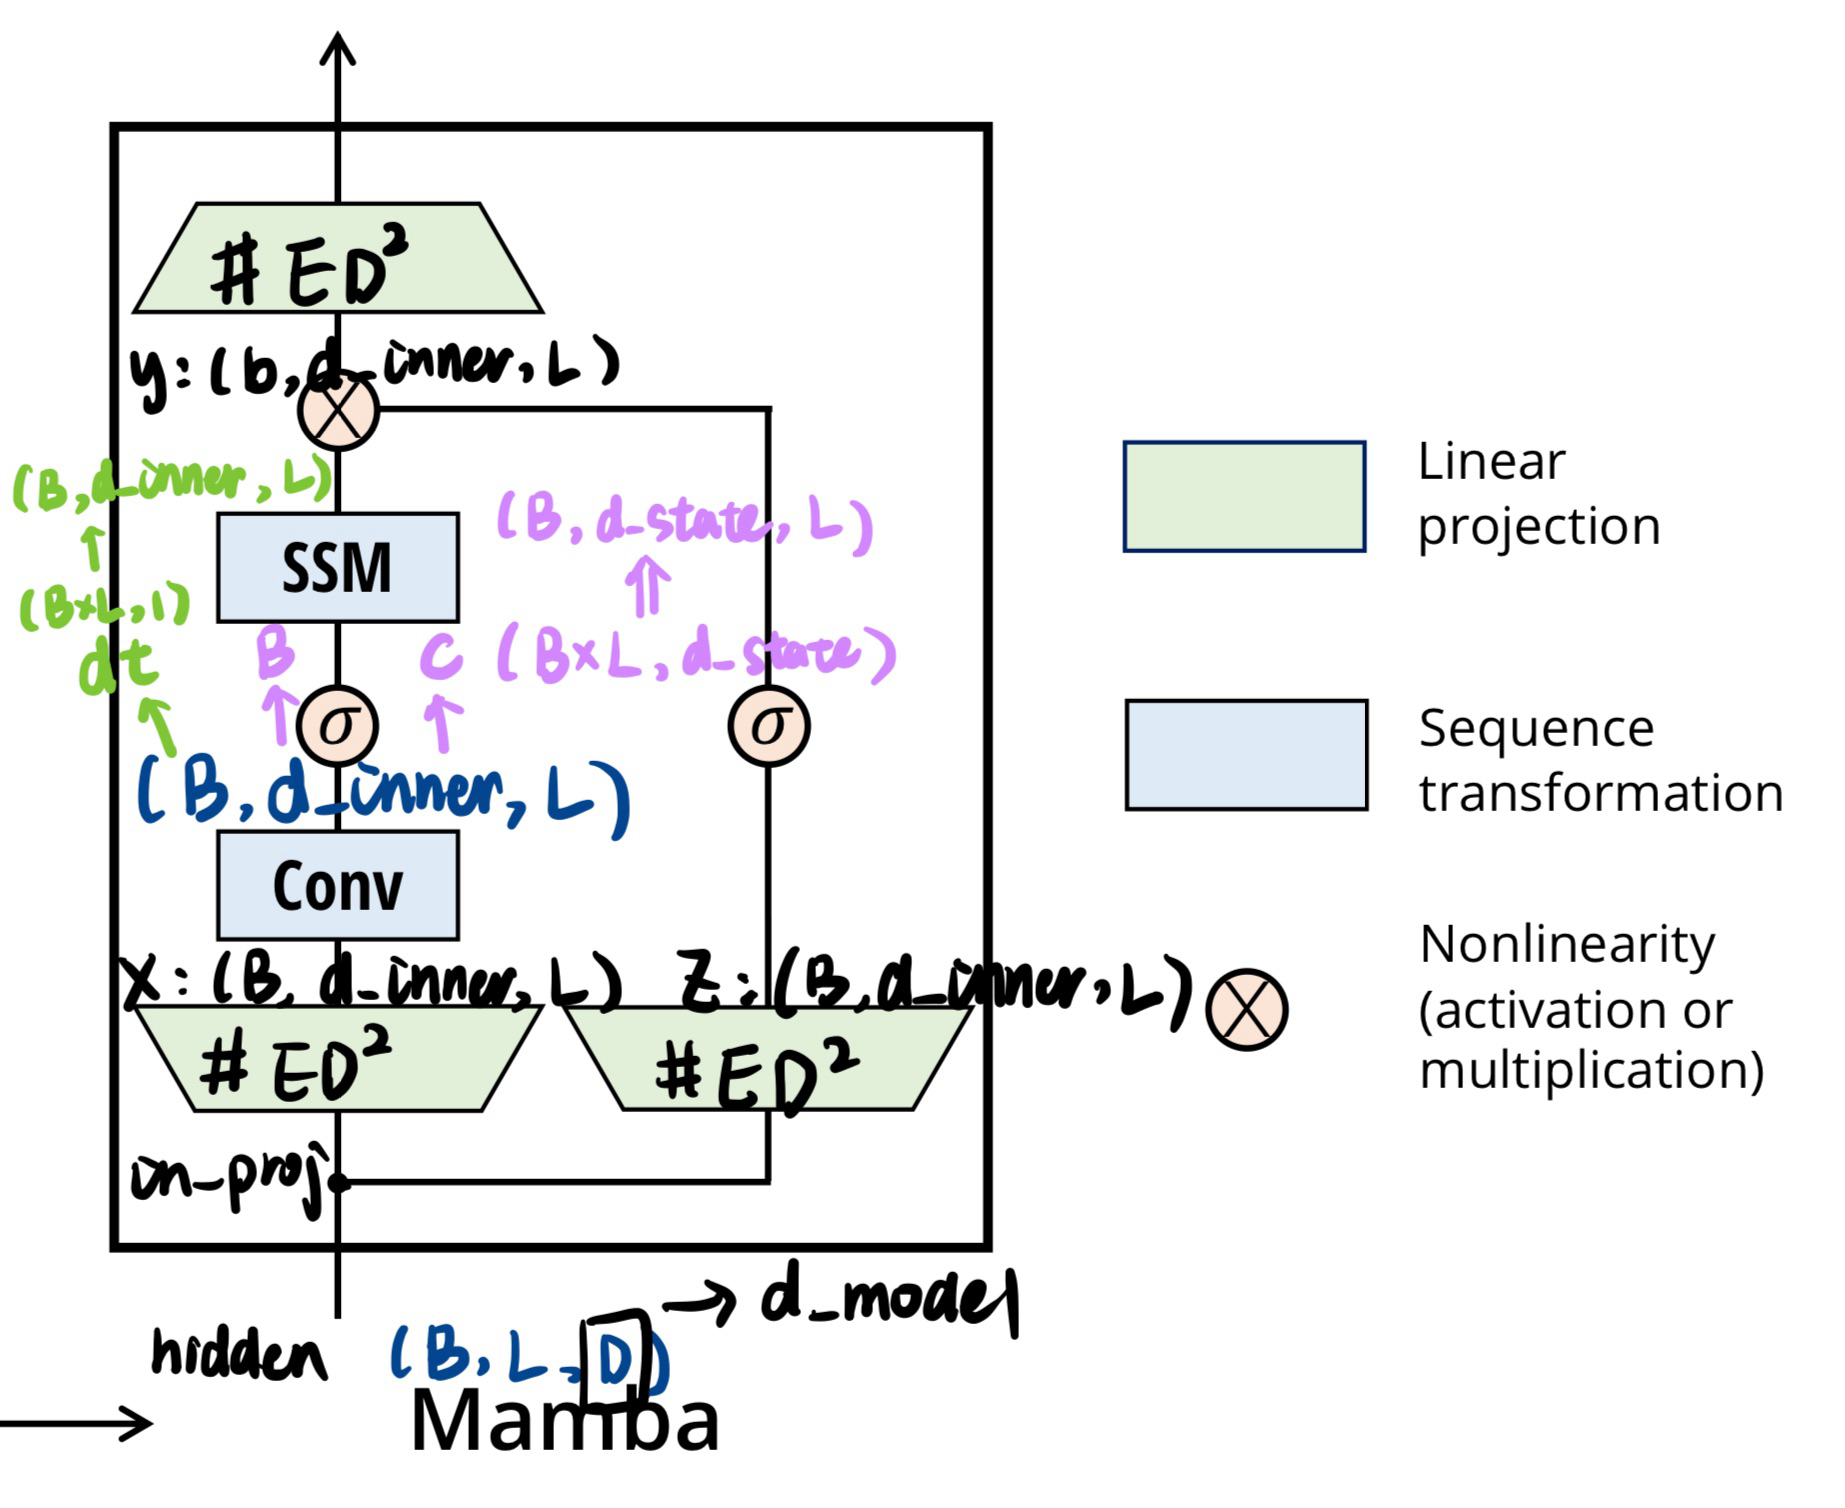 # ED²
y: (b, d_inner, L)
(B, d_inner, L)
(B, d_state, L)
SSM
(B×L, 1)
dt
B
C (B×L, d_state)
σ
σ
(B, d_inner, L)
Conv
X: (B, d_inner, L)
Z: (B, d_inner, L)
# ED²
# ED²
in_proj
→ d_model
hidden (B, L, D)
Mamba
Linear
projection
Sequence
transformation
Nonlinearity
(activation or
multiplication)